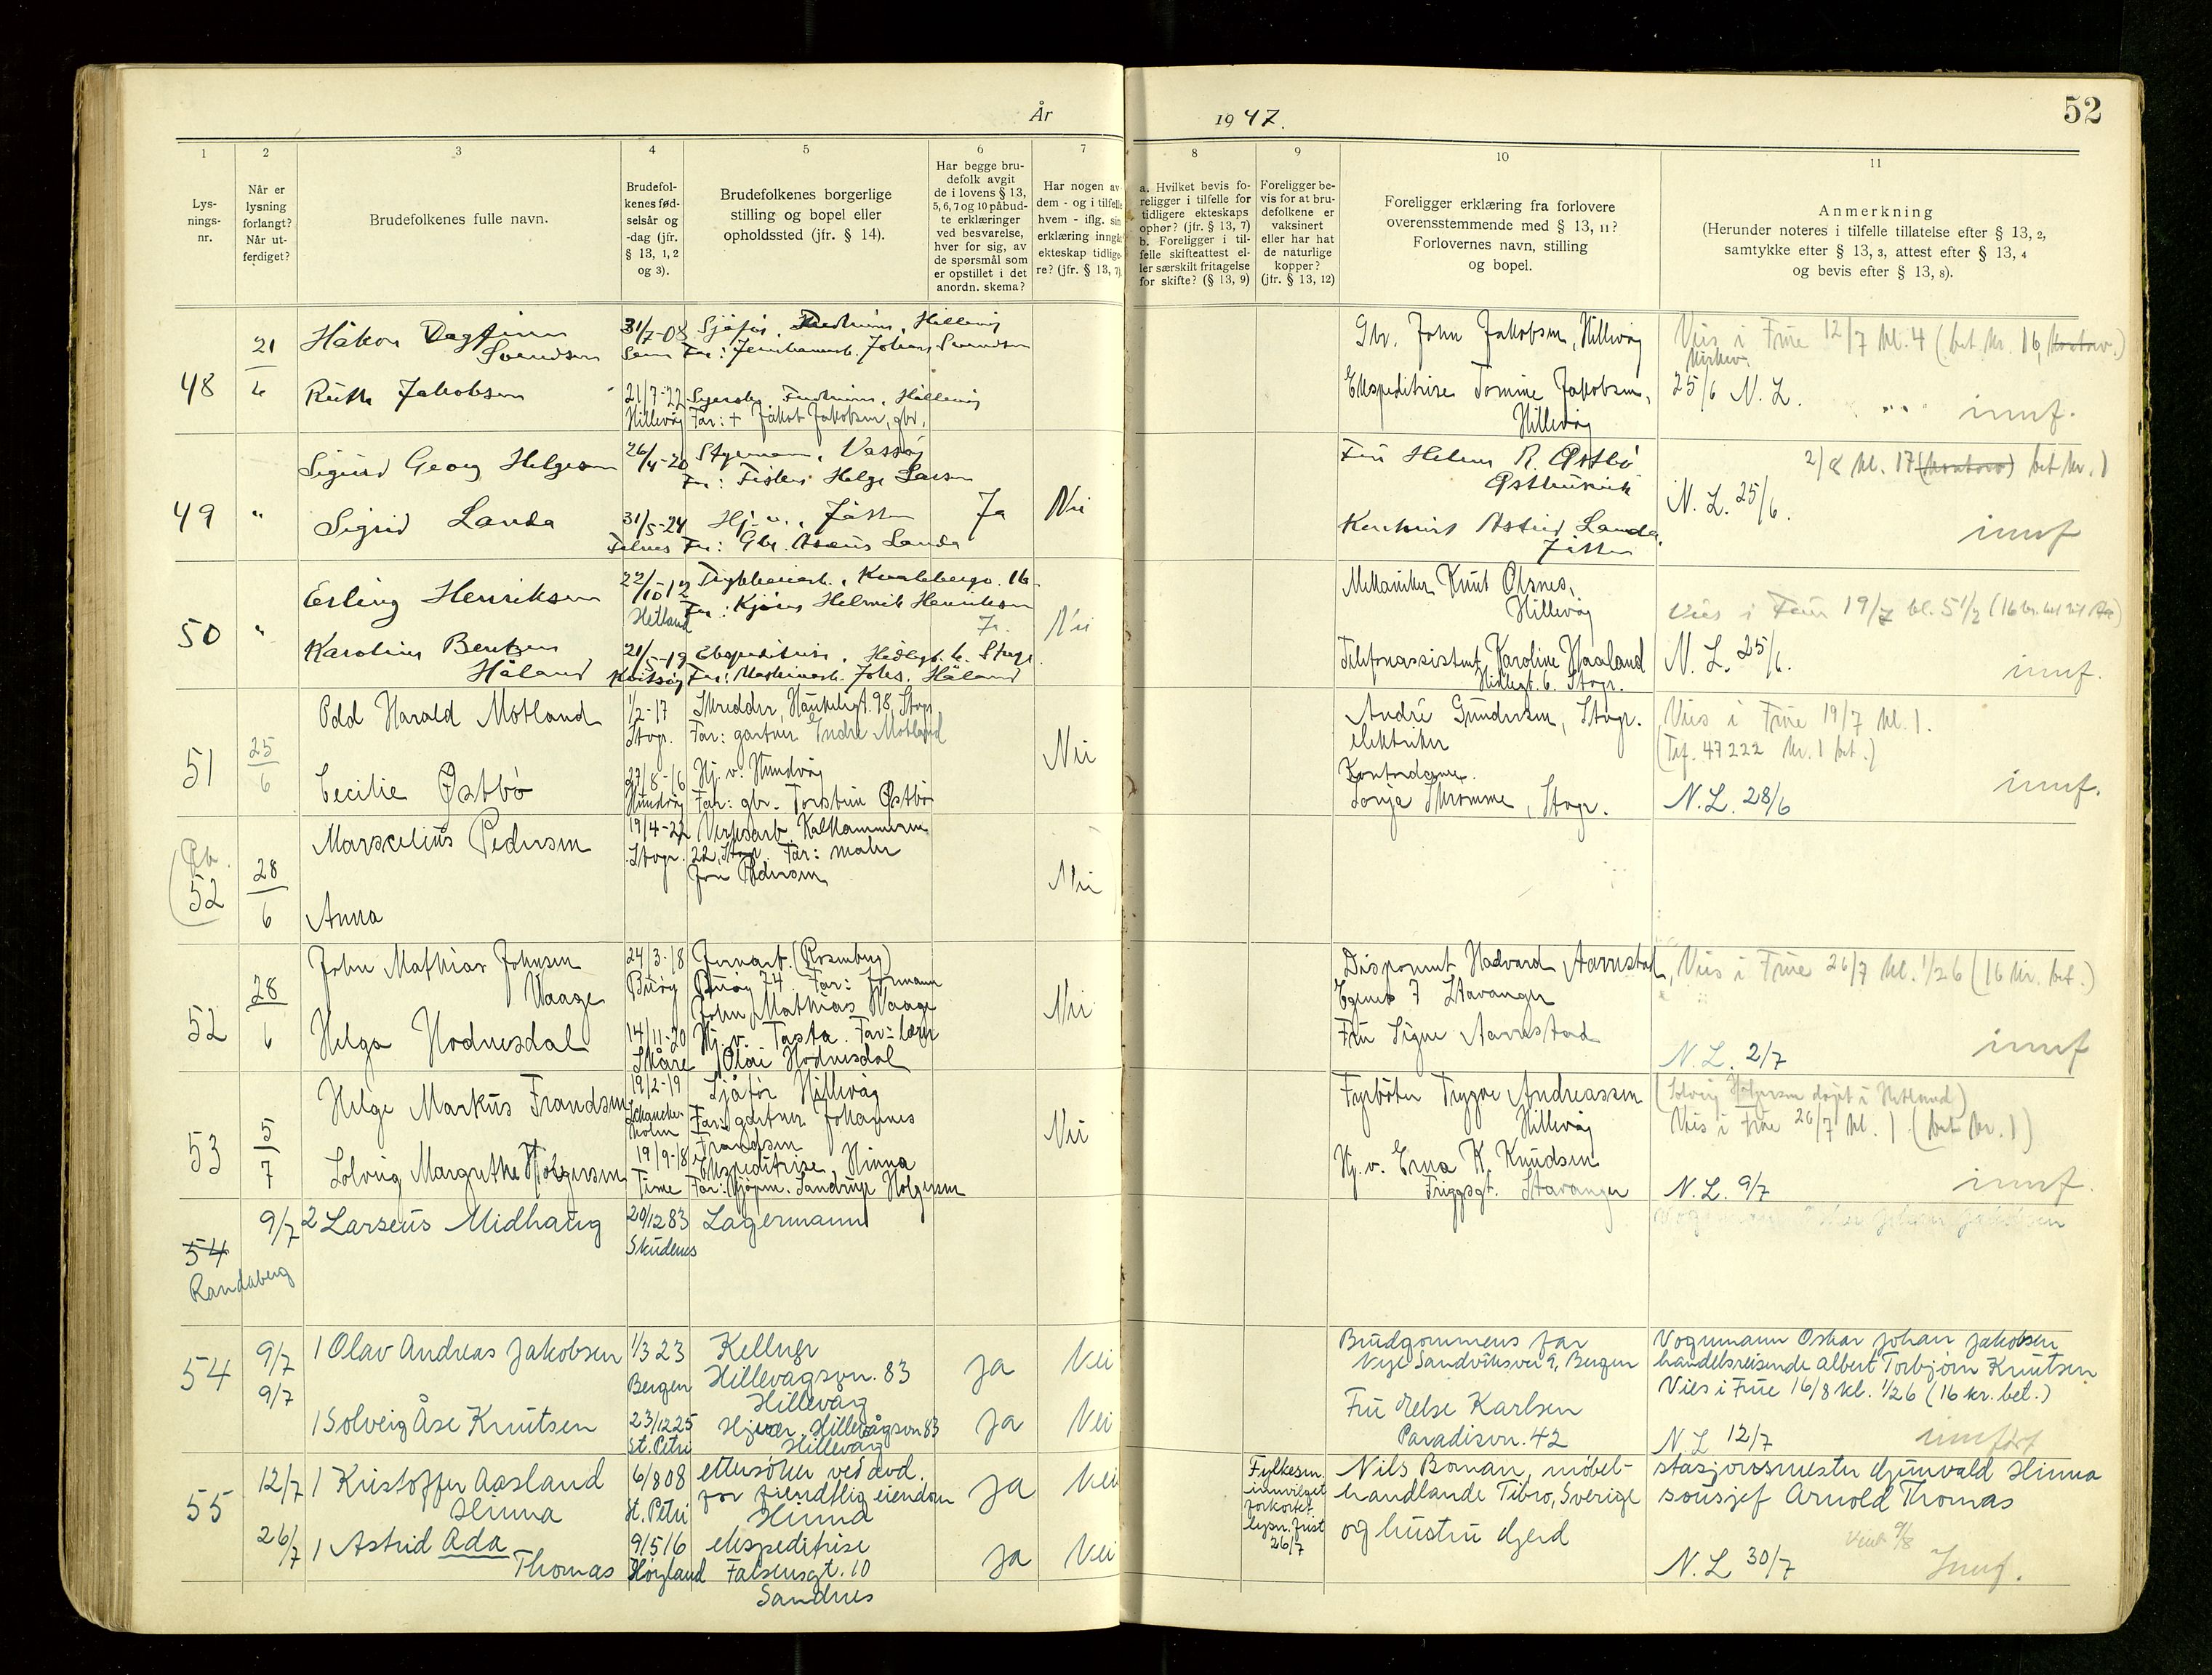 År
1947.
52
1
2
3
4
5
6
7
8
9
10
11
Lys-
nings-
nr.
Når er
lysning
forlangt?
Når ut-
ferdiget?
Brudefolkenes fulle navn.
Brudefol-
kenes fød-
selsår og
-dag (jfr.
§ 13, 1, 2
og 3).
Brudefolkenes borgerlige
stilling og bopel eller
opholdssted (jfr. § 14).
Har begge bru-
defolk avgit
de i lovens § 13,
5, 6, 7 og 10 påbud-
te erklæringer
ved besvarelse,
hver for sig, av
de spørsmål som
er opstillet i det
anordn. skema?
Har nogen av
dem - og i tilfelle
hvem - iflg. sin
erklæring inngåt
ekteskap tidlige-
re? (jfr. § 13, 7)
a. Hvilket bevis fo-
religger i tilfelle for
tidligere ekteskaps
ophør? (jfr. § 13, 7)
b. Foreligger i til-
felle skifteattest el-
ler særskilt fritagelse
for skifte? (§ 13, 9)
Foreligger be-
vis for at bru-
defolkene er
vaksinert
eller har hat
de naturlige
kopper?
(jfr. § 13, 12)
Foreligger erklæring fra forlovere
overensstemmende med § 13, 11?
Forlovernes navn, stilling
og bopel.
Anmerkning
(Herunder noteres i tilfelle tillatelse efter § 13, 2,
samtykke efter § 13, 3, attest efter § 13, 4
og bevis efter § 13, 8).
48
21/6
Håkon Dagfinn
Svendsen
31/7-08
Sjåfør, Hillevåg
Far: Johan Svendsen
Ruth Jakobsen
21/7-22
Hillevåg
Hillevåg
Far: + Jakob Jakobsen, gbr.
Gbr. John Jakobsen, Hillevåg
Ekspeditrise Tomine Jakobsen,
Hillevåg
Vies i Frue 12/7 kl. 4 (bet. kr. 16, kontor.)
25/6 N. L.
innf.
49
"
Sigurd Georg Helgesen
26/4-20
Styrmann, Vassøy
Far: Fisker Helge Larsen
Sigrid Landa
31/5-24
Hj. v., Jåtten
Far: Gbr. Landa
Ja
Nei
Fru Helene R. Østbø
Astrid Landa,
Jåtten
2/8 kl. 17 (kontor) bet kr. 1
N. L. 25/6.
innf
50
"
Erling Henriksen
22/10-12
Hetland
Kvalebergv. 16
Far: Henriksen
Karoline Bentzen
Håland
21/5-19
Kvitsøy
Ekspeditrise, Hedlegt. 6. Stvgr.
Far: Maskinarb. Johs. Håland
Ja
Nei
Mekaniker Knut Olsnes,
Hillevåg
Telefonassistent Karoline Haaland
Hedlegt. 6. Stvgr.
Vies i Frue 19/7 kl. 5 1/2
N. L. 25/6.
innf.
51
25/6
Odd Harald Motland
1/2-17
Stvgr.
Skredder, Haukeligt. 98, Stvgr
Far: gartner Endre Motland
Cecilie Østbø
27/8-16
Hundvåg
Hj. v. Hundvåg
Far: gbr. Torstein Østbø
Nei
André Gundersen, Stvgr.
elektriker
Kontordame.
Sonja Skromme, Stvgr.
Vies i Frue 19/7 kl. 1.
(Tlf. 47222 kr. 1 bet.)
N. L. 28/6
innf.
52
28/6
Marselius Pedersen
19/4-22
Stvgr.
Verksarb. Kalhammeren
22, Stvgr. Far: maler
Pedersen
Anna
Nei
52
28/6
John Mathias Johnsen
Vaage
24/3-18
Buøy
Jernarb. (Rosenberg)
Buøy 74. Far: formann
John Mathias Vaage
Helga Hodnesdal
14/11-20
Skåre
Hj. v. Tasta. Far: lærer
Olai Hodnesdal
Nei
Disponent Hadvard Aarrestad,
Egenes 7 Stavanger
Fru Signe Aarrestad
Vies i Frue 26/7 kl. 1/2 6 (16 kr. bet.)
N. L. 2/7
innf
53
5/7
Helge Markus Frandsen
19/2-19
Sjåfør Hillevåg
Far: gartner Johannes
Frandsen
Solveig Margrethe Holgersen
19/9-18
Time
Ekspeditrise, Hinna
Far: Kjøpm. Sandrup Holgersen
Nei
Fyrbøter Trygve Andreassen
Hillevåg
Hj. v. Erna K. Knudsen
Friggsgt. Stavanger
(Solveig Holgersen døpt i Hetland)
Vies i Frue 26/7 kl. 1. (bet kr. 1)
N. L. 9/7
innf.
54
Randaberg
9/7
2 Larseus Midhaug
20/12 83
Skudenes
Lagermann
54
9/7
9/7
1 Olav Andreas Jakobsen
1/3 23
Bergen
Kellner
Hillevågsvn. 83
Hillevåg
ja
Nei
1 Solveig Åse Knutsen
23/12 25
St. Petri
Hj.vær. Hillevågsvn. 83
Hillevåg
ja
Nei
Brudgommens far
Nye Sandviksvei 9, Bergen
Fru Else Karlsen
Paradisvn. 42
Vognmann Oskar Johan Jakobsen
handelsreisende Albert Torbjørn Knutsen
Vies i Frue 16/8 kl. 1/2 6 (16 kr. bet.)
N L 12/7
innført
55
12/7
26/7
1 Kristoffer Aasland
Hinna
6/8 08
St. Petri
ettersøker ved avd.
for fiendtlig eiendom
Hinna
ja
Nei
1 Astrid Ada
Thomas
9/5 16
Høyland
ekspeditrise
Falsensgt. 10
Sandnes
ja
Nei
Fylkesm.
innvilget
forkortet
lysn. frist
26/7
Nils Bonan, møbel-
handlande Tibro, Sverige
og hustru Gjerd
stasjonsmester Gunvald Hinna
sousjef Arnold Thomas
Viet 9/8
N. L 30/7
Innf.